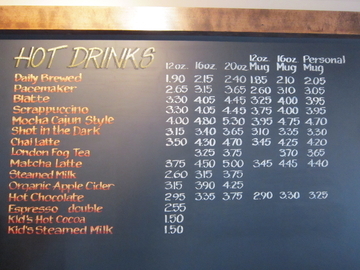 HOT DRINKS 12oz. 16oz. 20oz. 12oz Mug 16oz Mug Personal Mug
Daily Brewed 1.90 2.15 2.40 1.85 2.10 2.05
Pacemaker 2.65 3.15 3.65 2.60 3.10 3.05
Blatte 3.30 4.05 4.45 3.25 4.00 3.95
Scrappuccino 3.30 4.05 4.45 3.75 4.00 3.95
Mocha Cajun Style 4.00 4.80 5.30 3.95 4.75 4.70
Shot in the Dark 3.15 3.40 3.65 3.10 3.35 3.30
Chai Latte 3.50 4.30 4.70 3.45 4.25 4.20
London Fog Tea 3.25 3.75 3.70 3.65
Matcha Latte 3.75 4.50 5.00 3.45 4.45 4.40
Steamed Milk 2.60 3.15 3.75
Organic Apple Cider 3.15 3.90 4.25
Hot Chocolate 2.95 3.35 3.75 2.90 3.30 3.25
Espresso double 2.55
Kid's Hot Cocoa 1.50
Kid's Steamed Milk 1.50